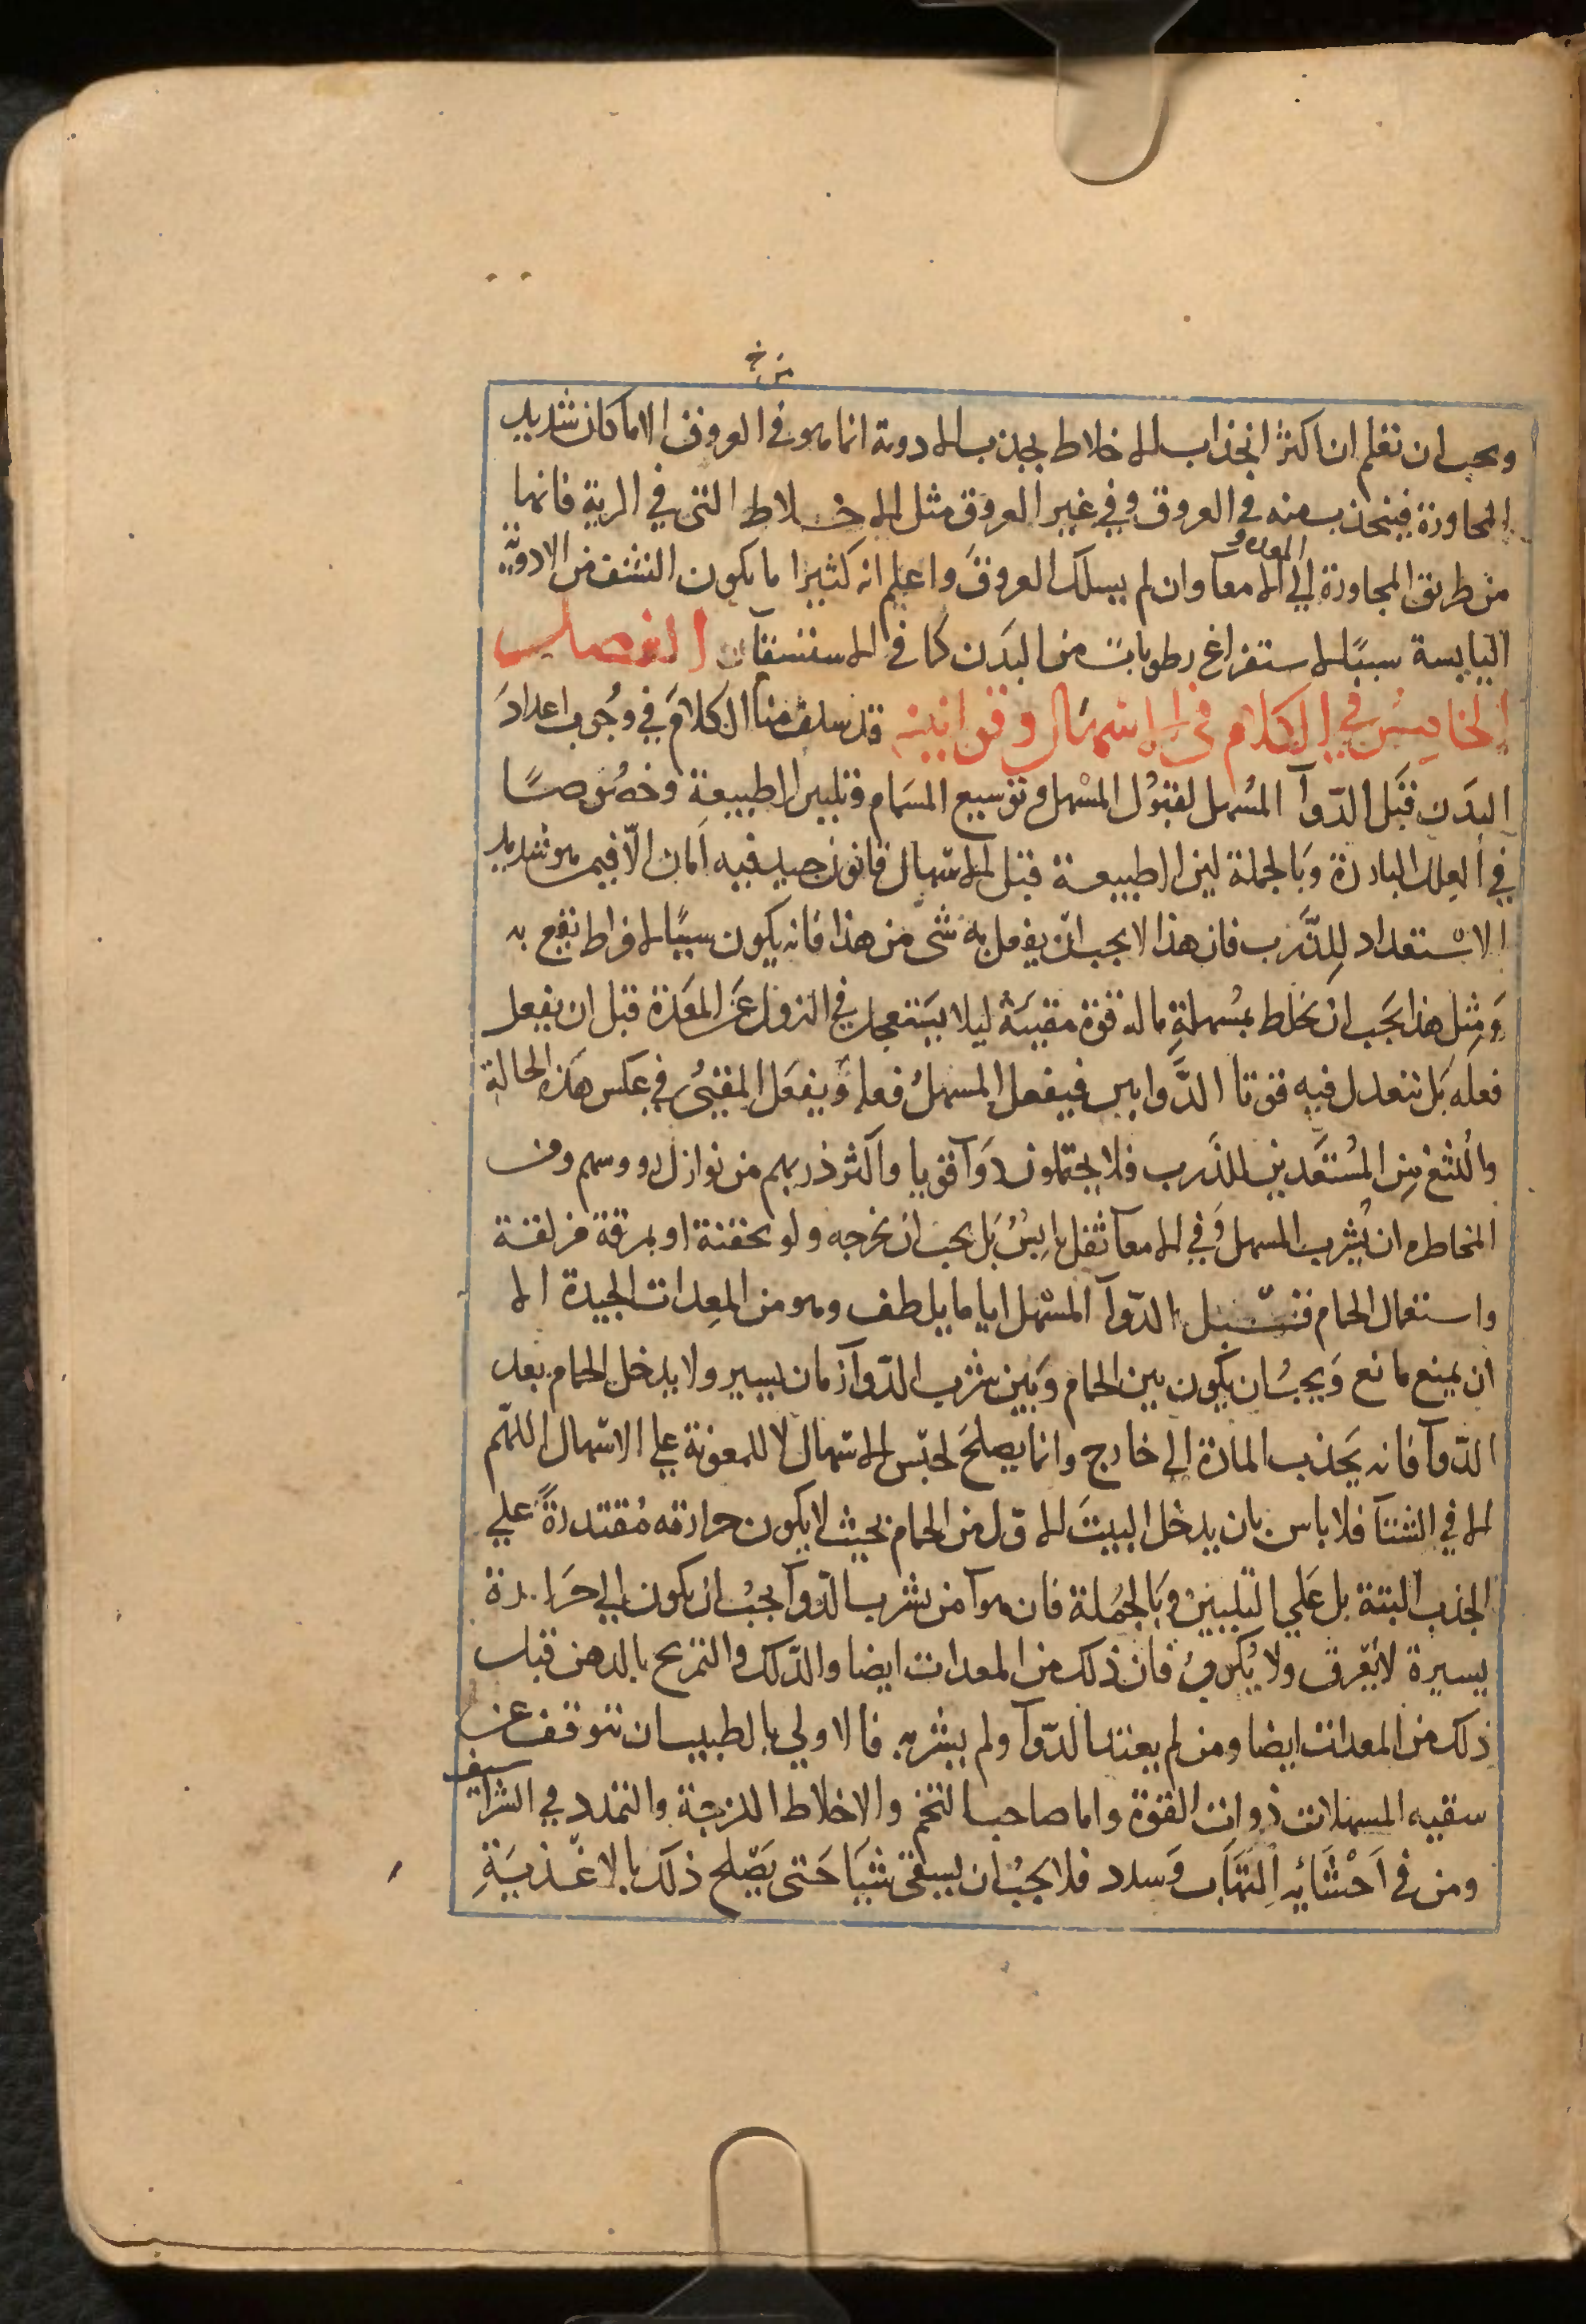 من خ
ويجب ان تعلم ان اكثر انجذاب الاخلاط بجذب الادوية انما هو في العروق الا ما كان شديد
المجاورة فينجذب منه في العروق وفي غير العروق مثل الاخلاط التي في الرية فانها
المعدة و
من طريق المجاورة الي الامعا وان لم يسلك العروق واعلم انه كثيرا ما يكون النشف من الادوية
اليابسة سببا لاستفراغ رطوبات من البدن كما في الاستسقا الفصل
الخامس في الكلام في الاسهال وقوانينه قد سلف منا الكلام في وجوب اعداد
البدن قبل الدوآ المسهل لقبول المسهل وتوسيع المسام وتليين الطبيعة وخصوصا
في العلل الباردة وبالجملة لين الطبيعة قبل الاسهال قانون جيد فيه امان الا فيمن هو شديد
الاستعداد للذرب فان هذا لا يجب ان يفعل به شي من هذا فانه يكون سببا لافراط يقع به
ومثل هذا يجب ان يخلط بمسهلة ما له قوة مقيئة ليلا يستعجل في النزول عن المعدة قبل ان يفعل
فعله بل تتعدل فيه قوتا الدوايين فيفعل المسهل فعله ويفعل المقيئ في عكس هذه الحالة
واللثغ من المستعدين للذرب فلا يحتملون دوآ قويا واكثر ذربهم من نوازل رووسهم ومن
المخاطره ان يشرب المسهل وفي الامعآ ثفل يابس بل يجب ان يخرجه ولو بحقنة او بمرقة مزلقة
واستعمال الحمام قبل الدوآ المسهل اياما يلطف وهو من المعدات الجيدة الا
ان يمنع مانع ويجب ان يكون بين الحمام وبين شرب الدوآ زمان يسير ولا يدخل الحمام بعد
الدوآ فانه يجذب المادة الي خارج وانما يصلح لحبس الاسهال لا للمعونة علي الاسهال اللهم
الا في الشتآ فلا باس بان يدخل البيت الاول من الحمام بحيث لا يكون حرارته مقتدرة علي
الجذب البتة بل علي التليين وبالجملة فان هوآ من يشرب الدوآ يجب ان يكون الي حرارة
يسيرة لا يعرق ولا يكرب فان ذلك من المعدات ايضا والدلك والتمريح بالدهن قبل
ذلك من المعدات ايضا ومن لم يعتد الدوآ ولم يشربه فالاولي بالطبيب ان يتوقف عن
سقيه المسهلات ذوات القوة واما صاحب التخم والاخلاط اللزجة والتمدد في الشراسيف
ومن في احشائه التهاب وسدد فلا يجب ان يسقي شيا حتى يصلح ذلك بالاغذية